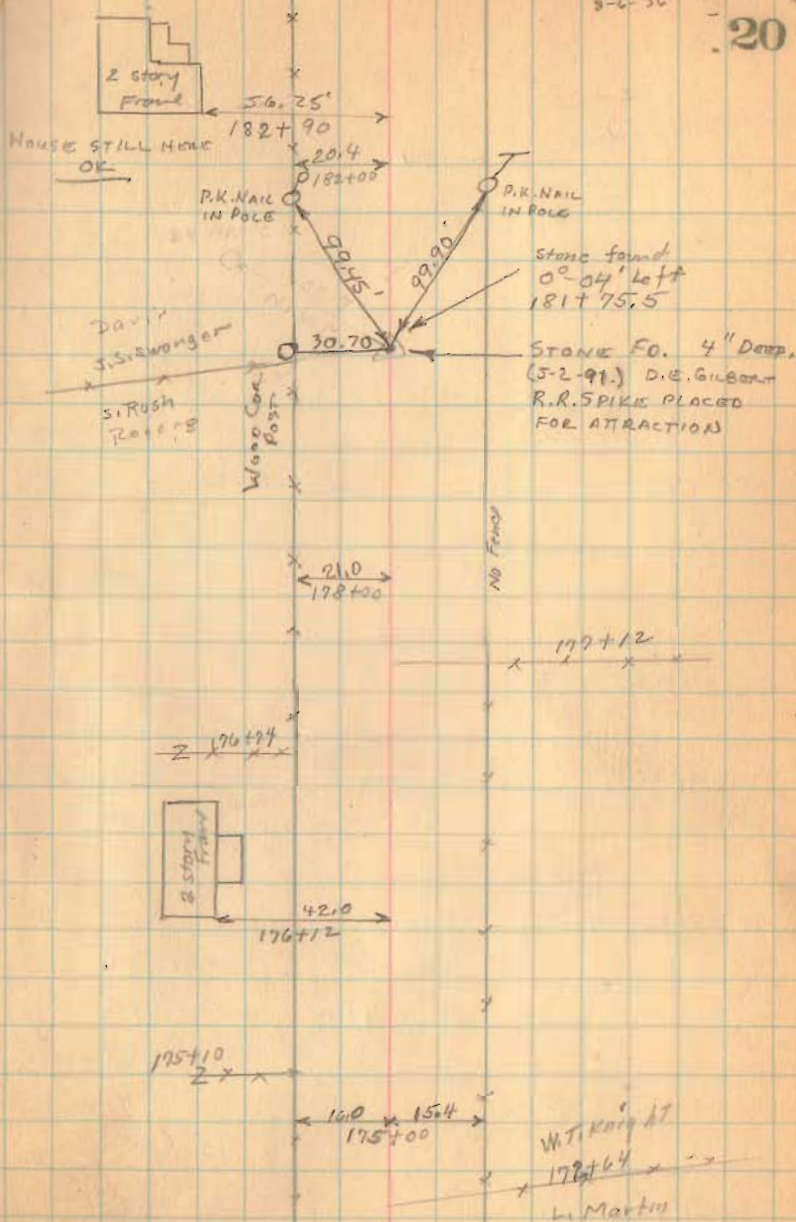 20
2 story
Frame
56.25'
182+90
HOUSE STILL HERE
OK
20.4
182+00
P.K. NAIL
IN POLE
P.K. NAIL
IN POLE
99.45'
99.90'
stone found
0°-04' Left
181+75.5
30.70
STONE FD. 4" DEEP.
(5-2-91.) D.E. GILBERT
R.R. SPIKE PLACED
FOR ATTRACTION
Davis
J.S. Swonger
S. Rush
Rogers
Wood Cor.
Post
No Fence
21.0
178+00
177+12
176+74
2 story
Frame
42.0
176+12
175+10
16.0 15.4
175+00
W.T. Knight
L. Martin